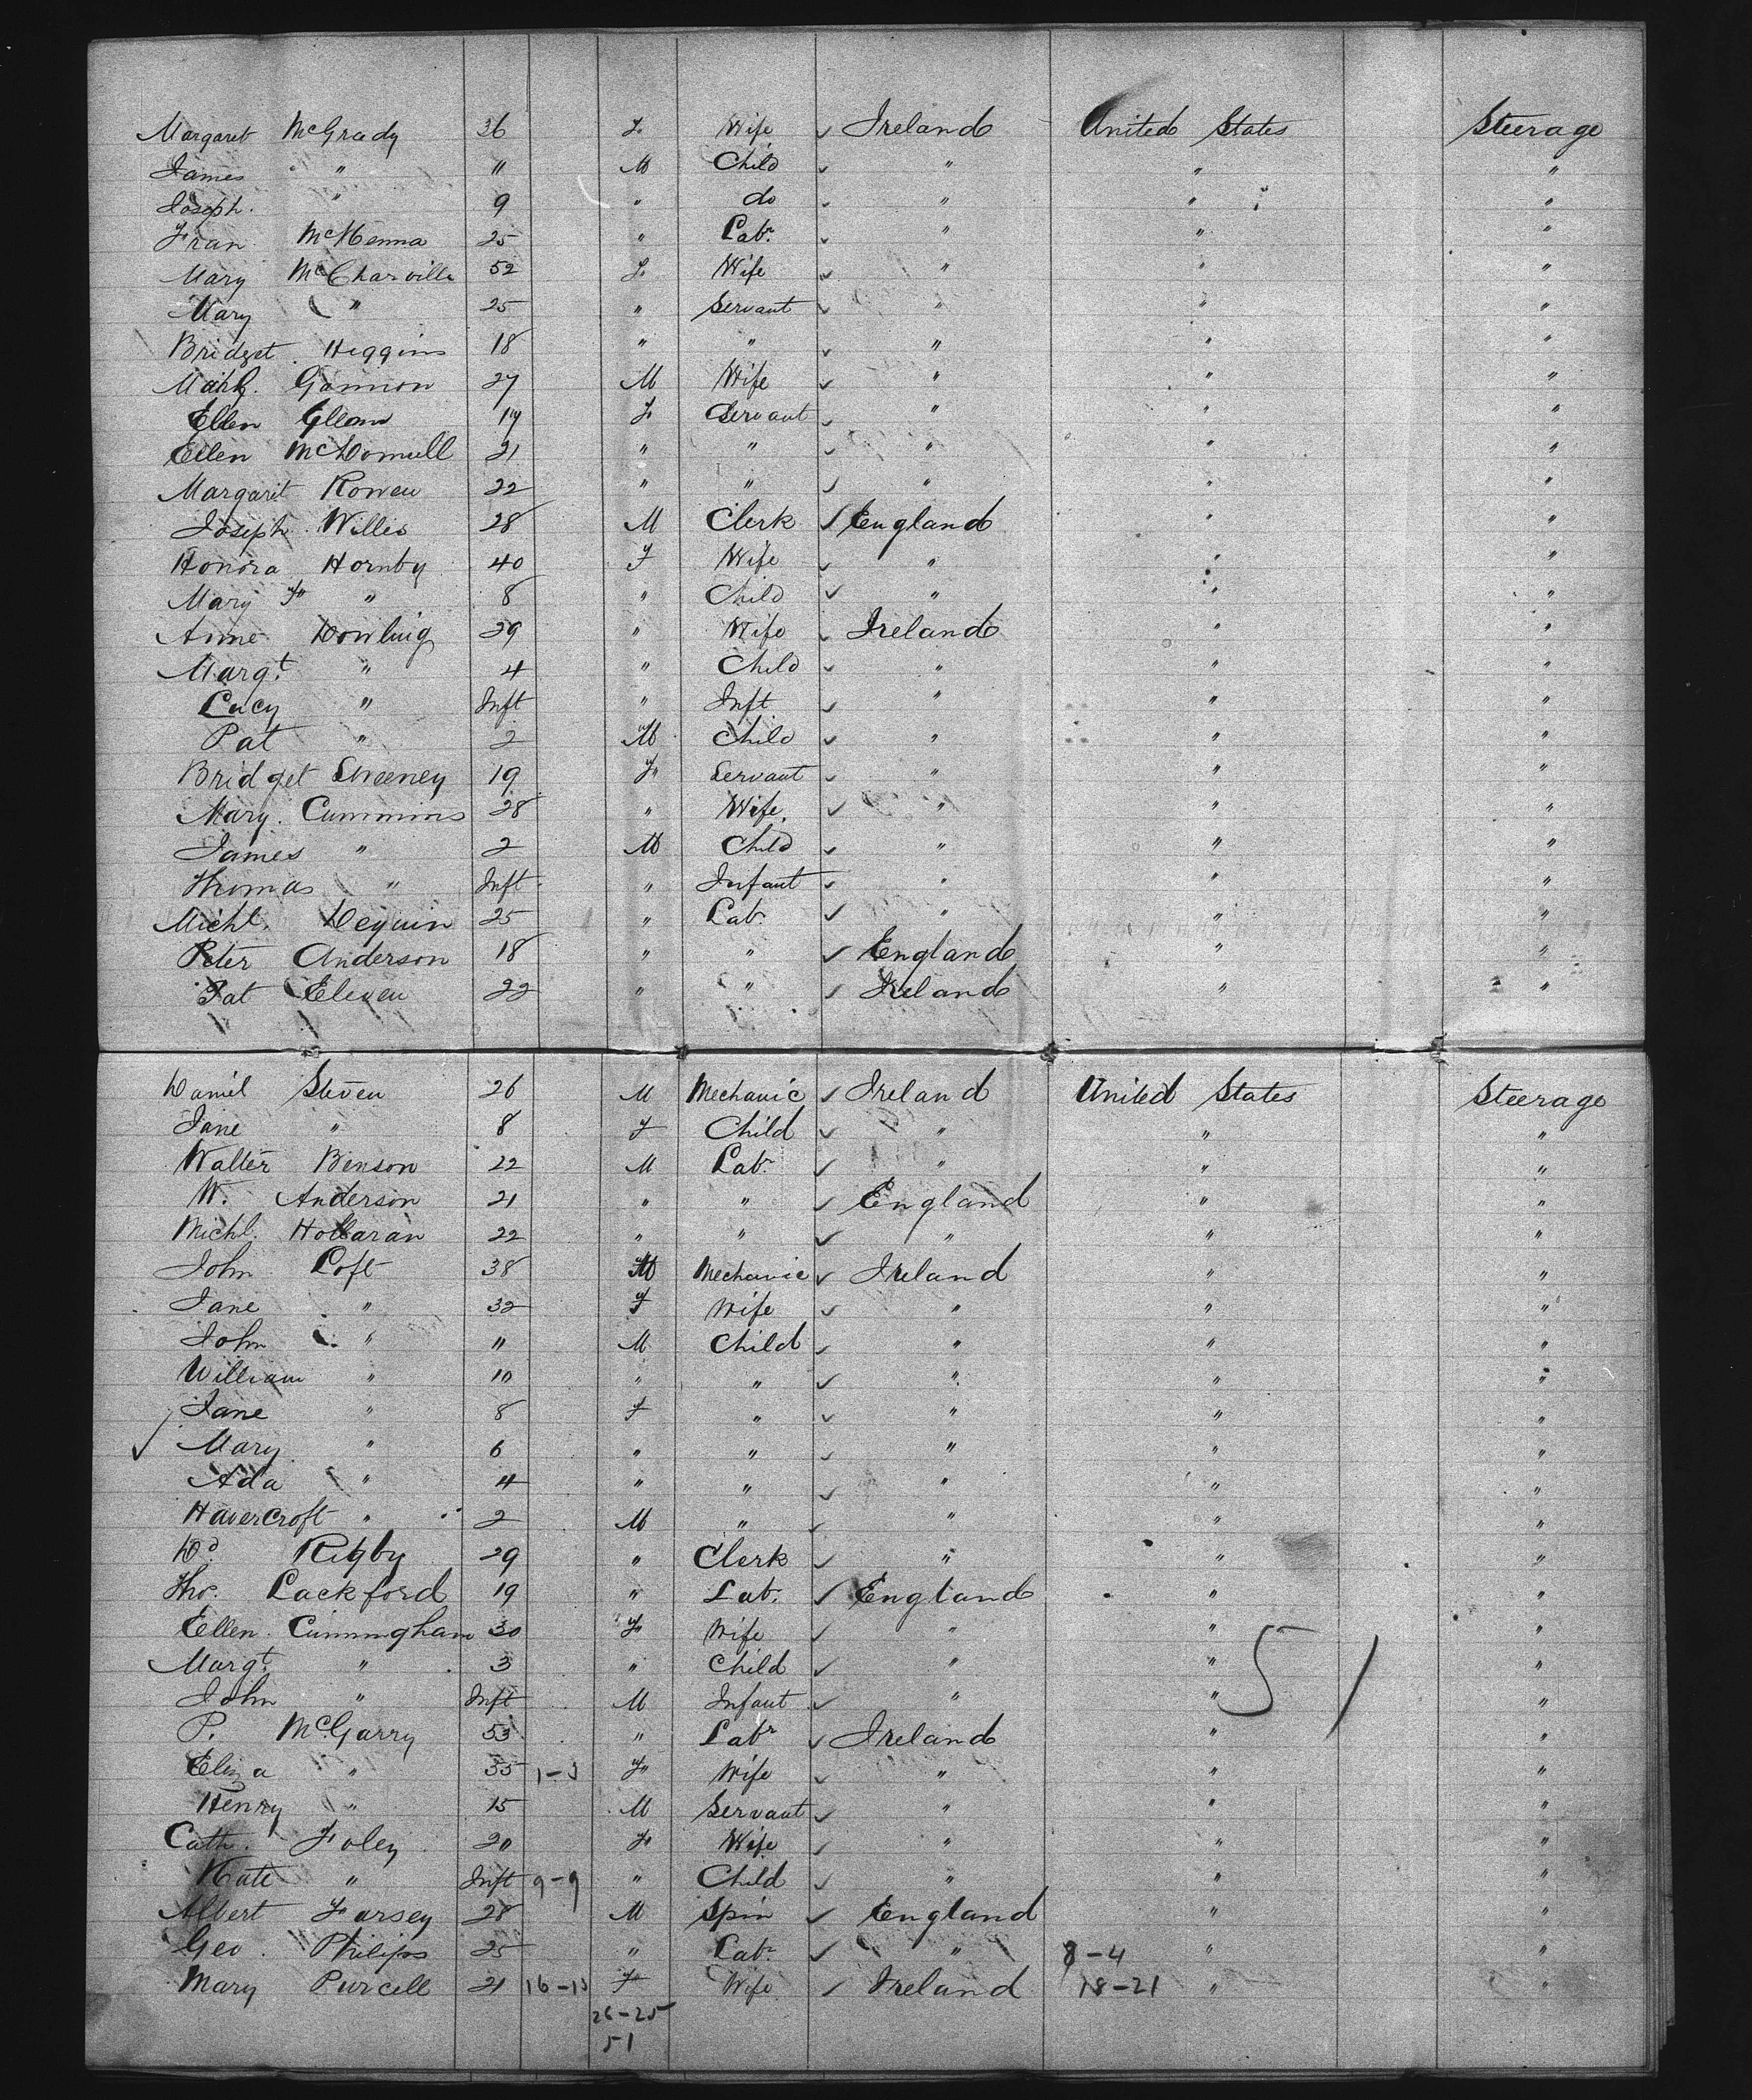 Margaret McGrady 36 F. Wife ✓ Ireland United States Steerage
James " 11 M Child ✓ " " "
Joseph. " 9 " do ✓ " " "
Fran McKenna 25 " Labr. ✓ " " "
Mary McCharville 52 F. Wife ✓ " " "
Mary " 25 " Servant ✓ " " "
Bridget Higgins 18 " " ✓ " " "
Gannon 27 M Wife ✓ " " "
Ellen 19 F Servant ✓ " " "
Ellen McDonnell 21 " " ✓ " " "
Margarit Rowen 22 " " ✓ " " "
Joseph Willis 28 M Clerk ✓ England " "
Honora Hornby 40 F Wife ✓ " " "
Mary F " 8 " Child ✓ " " "
Anne Dowling 29 " Wife ✓ Ireland " "
Margt. " 4 " Child ✓ " " "
Lucy " Inft " Inft ✓ " " "
Pat " 2 M Child ✓ " " "
Bridget Sweeney 19 F Servant ✓ " " "
Mary. Cummins 28 " Wife. ✓ " " "
James " 2 M Child ✓ " " "
Thomas " Inft. " Infant ✓ " " "
Michl. Deguin 25 " Lab. ✓ " " "
Peter Anderson 18 " " ✓ England " "
Pat Eleven 22 " " ✓ Ireland " "
Daniel Steven 26 M Mechanic ✓ Ireland United States Steerage
Jane " 8 F Child ✓ " " "
Walter Benson 22 M Labr. ✓ " " "
W. Anderson 21 " " ✓ England " "
Michl. Hollaran 22 " " ✓ " " "
John Loft 38 M Mechanic ✓ Ireland " "
Jane " 32 F Wife ✓ " " "
John " 11 M Child ✓ " " "
William " 10 " " ✓ " " "
Jane " 8 F " ✓ " " "
✓ Mary " 6 " " ✓ " " "
Ada " 4 " " ✓ " " "
Havercroft " 2 M " ✓ " " "
Dd. Rigby 29 " Clerk ✓ " " "
Tho. Lackford 19 " Lab. ✓ England " "
Ellen. Cunningham 30 F Wife ✓ " " "
Margt. " 3 " Child ✓ " " "
51
John " Inft M Infant ✓ " " "
P. McGarry 53 " Labr ✓ Ireland " "
Eliza " 55 F Wife ✓ " " "
Henry " 15 M Servant ✓ " " "
Cath. Foley 20 F Wife ✓ " " "
Kate " Inft 9-9 " Child ✓ " " "
Albert Farsey 28 M Spin ✓ England " "
Geo. Philips 25 " Labr. ✓ " 8-4 " "
Mary Purcell 21 F Wife ✓ Ireland 18-21 " "
26-25
51